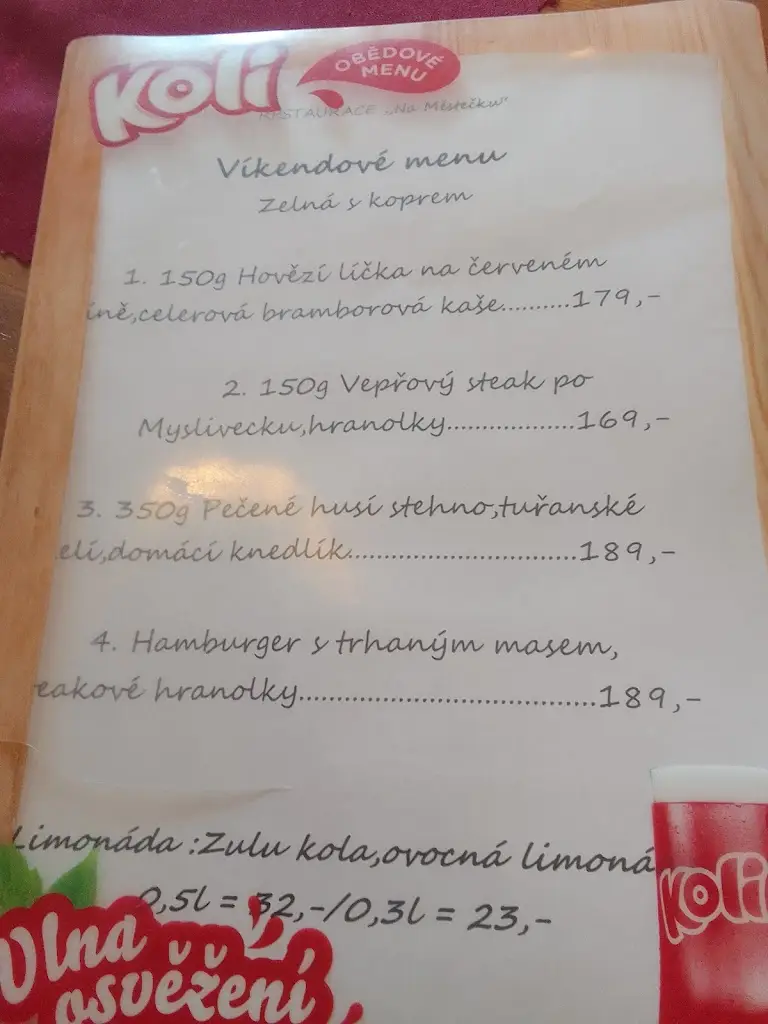 Koli OBĚDOVÉ
MENU
RESTAURACE „Na Městečku"
Víkendové menu
Zelná s koprem
1. 150g Hovězí líčka na červeném
íně,celerová bramborová kaše..........179,-
2. 150g Vepřový steak po
Myslivecku,hranolky...................169,-
3. 350g Pečené husí stehno,tuřanské
elí,domácí knedlík................................189,-
4. Hamburger s trhaným masem,
eakové hranolky..........................................189,-
Limonáda :Zulu kola,ovocná limoná
0,5l = 32,-/0,3l = 23,-
Koli
Vlna
osvěžení